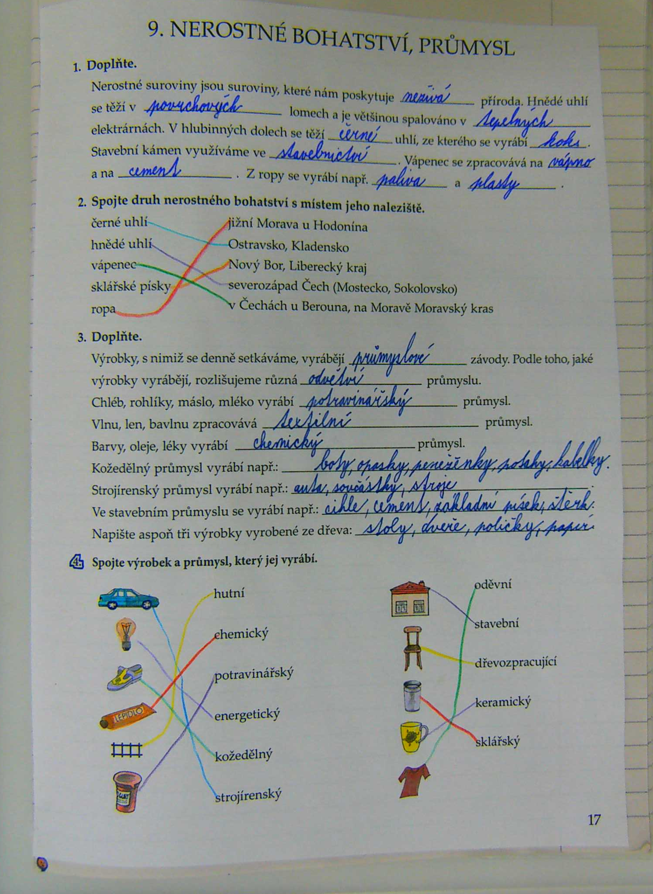 9. NEROSTNÉ BOHATSTVÍ, PRŮMYSL
1. Doplňte.
Nerostné suroviny jsou suroviny, které nám poskytuje neživá příroda. Hnědé uhlí
se těží v povrchových lomech a je většinou spalováno v tepelných
elektrárnách. V hlubinných dolech se těží černé uhlí, ze kterého se vyrábí koks.
Stavební kámen využíváme ve stavebnictví. Vápenec se zpracovává na vápno
a na cement. Z ropy se vyrábí např. paliva a plasty.
2. Spojte druh nerostného bohatství s místem jeho naleziště.
černé uhlí jižní Morava u Hodonína
hnědé uhlí Ostravsko, Kladensko
vápenec Nový Bor, Liberecký kraj
sklářské písky severozápad Čech (Mostecko, Sokolovsko)
ropa v Čechách u Berouna, na Moravě Moravský kras
3. Doplňte.
Výrobky, s nimiž se denně setkáváme, vyrábějí průmyslové závody. Podle toho, jaké
výrobky vyrábějí, rozlišujeme různá odvětví průmyslu.
Chléb, rohlíky, máslo, mléko vyrábí potravinářský průmysl.
Vlnu, len, bavlnu zpracovává textilní průmysl.
Barvy, oleje, léky vyrábí chemický průmysl.
Kožedělný průmysl vyrábí např.: boty, opasky, peněženky, potahy, kabelky.
Strojírenský průmysl vyrábí např.: auta, součástky, stroje
Ve stavebním průmyslu se vyrábí např.: cihle, cement, základní písek, štěrk.
Napište aspoň tři výrobky vyrobené ze dřeva: stoly, dveře, poličky, papír
4. Spojte výrobek a průmysl, který jej vyrábí.
hutní oděvní
chemický stavební
potravinářský dřevozpracující
energetický keramický
kožedělný sklářský
strojírenský
LEPIDLO
17